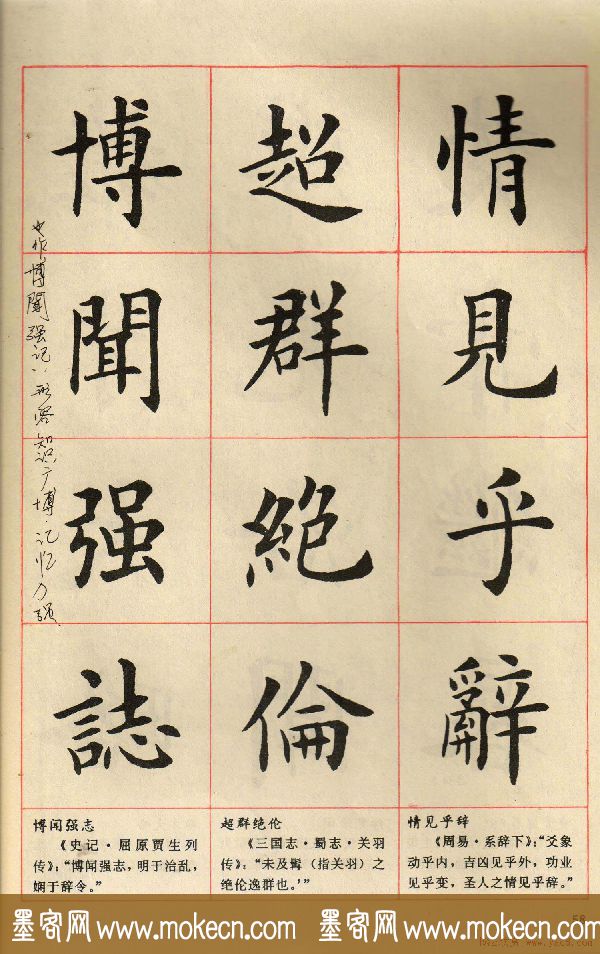 情見乎辭
超群絕倫
博聞强誌
也作博聞强记，形容知识广博，记忆力强
情见乎辞
《周易·系辞下》：“爻象
动乎内，吉凶见乎外，功业
见乎变，圣人之情见乎辞。”
超群绝伦
《三国志·蜀志·关羽
传》：“未及髯（指关羽）之
绝伦逸群也。’”
博闻强志
《史记·屈原贾生列
传》：“博闻强志，明于治乱，
娴于辞令。”
58
墨客网 www.mokecn.com 墨客网 www.mokecn.com